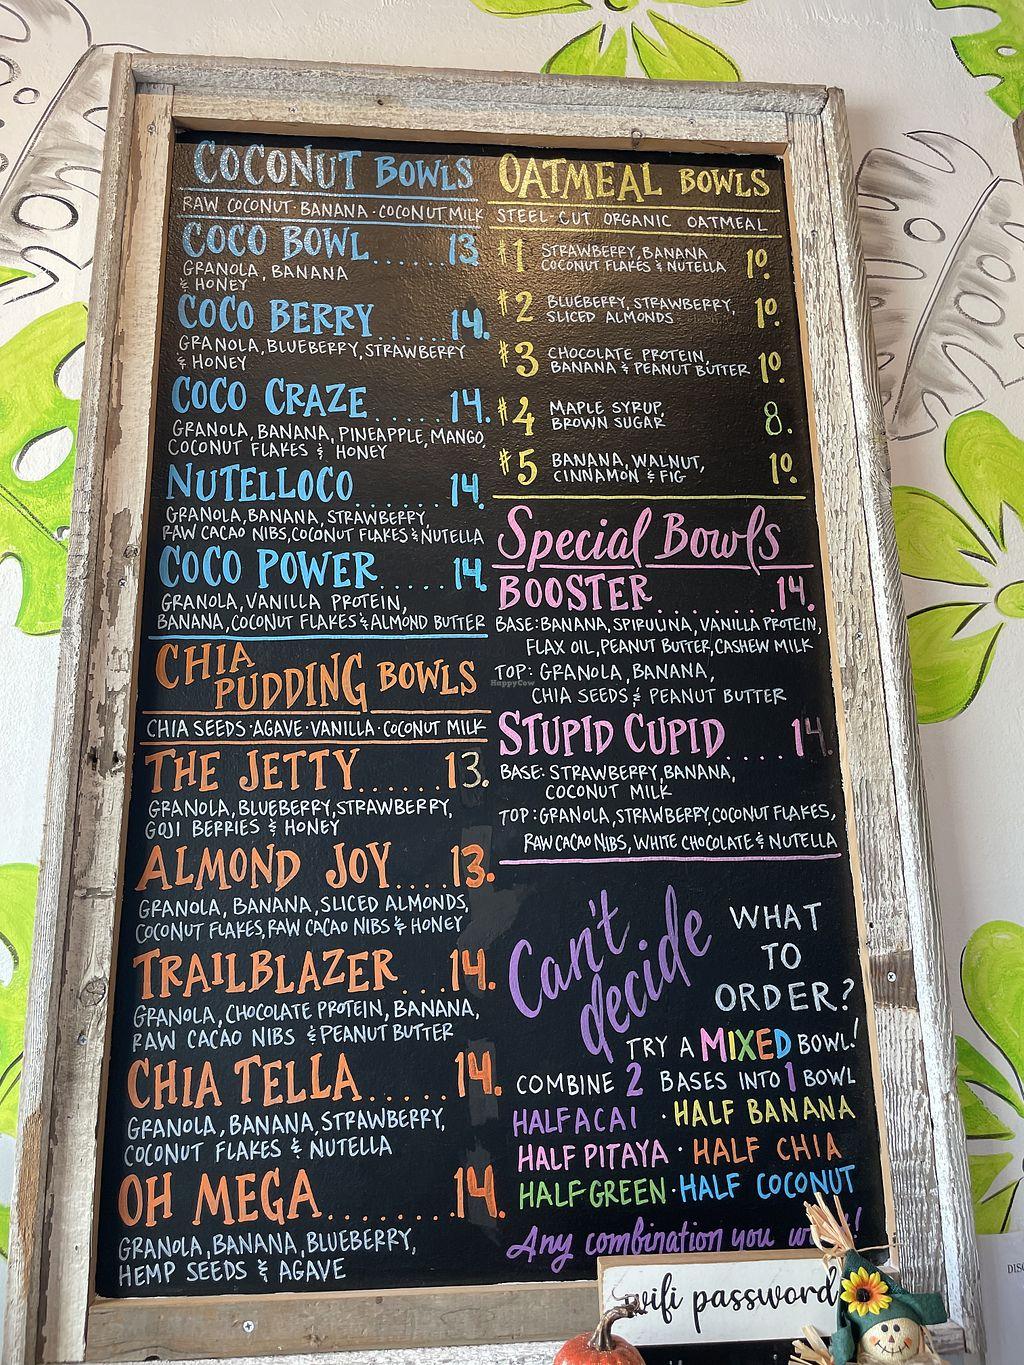 COCONUT BOWLS
RAW COCONUT · BANANA · COCONUT MILK
COCO BOWL...... 13
GRANOLA, BANANA
& HONEY
COCO BERRY ...... 14.
GRANOLA, BLUEBERRY, STRAWBERRY
& HONEY
COCO CRAZE ...... 14.
GRANOLA, BANANA, PINEAPPLE, MANGO,
COCONUT FLAKES & HONEY
NUTELLOCO ...... 14.
GRANOLA, BANANA, STRAWBERRY,
RAW CACAO NIBS, COCONUT FLAKES & NUTELLA
COCO POWER..... 14.
GRANOLA, VANILLA PROTEIN,
BANANA, COCONUT FLAKES & ALMOND BUTTER
CHIA
PUDDING BOWLS
CHIA SEEDS · AGAVE · VANILLA · COCONUT MILK
THE JETTY..... 13.
GRANOLA, BLUEBERRY, STRAWBERRY,
GOJI BERRIES & HONEY
ALMOND JOY.... 13.
GRANOLA, BANANA, SLICED ALMONDS,
COCONUT FLAKES, RAW CACAO NIBS & HONEY
TRAILBLAZER ... 14.
GRANOLA, CHOCOLATE PROTEIN, BANANA,
RAW CACAO NIBS & PEANUT BUTTER
CHIA TELLA...... 14.
GRANOLA, BANANA, STRAWBERRY,
COCONUT FLAKES & NUTELLA
OH MEGA......... 14.
GRANOLA, BANANA, BLUEBERRY,
HEMP SEEDS & AGAVE
OATMEAL BOWLS
STEEL-CUT ORGANIC OATMEAL
#1 STRAWBERRY, BANANA 10.
COCONUT FLAKES & NUTELLA
#2 BLUEBERRY, STRAWBERRY, 10.
SLICED ALMONDS
#3 CHOCOLATE PROTEIN, 10.
BANANA & PEANUT BUTTER
#4 MAPLE SYRUP, 8.
BROWN SUGAR
#5 BANANA, WALNUT, 10.
CINNAMON & FIG
Special Bowls
BOOSTER......... 14.
BASE: BANANA, SPIRULINA, VANILLA PROTEIN,
FLAX OIL, PEANUT BUTTER, CASHEW MILK
TOP: GRANOLA, BANANA,
CHIA SEEDS & PEANUT BUTTER
STUPID CUPID .... 14.
BASE: STRAWBERRY, BANANA,
COCONUT MILK
TOP: GRANOLA, STRAWBERRY, COCONUT FLAKES,
RAW CACAO NIBS, WHITE CHOCOLATE & NUTELLA
Can't decide
WHAT
TO
ORDER?
TRY A MIXED BOWL!
COMBINE 2 BASES INTO 1 BOWL
HALF ACAI · HALF BANANA
HALF PITAYA · HALF CHIA
HALF GREEN · HALF COCONUT
Any combination you
wifi password
HappyCow